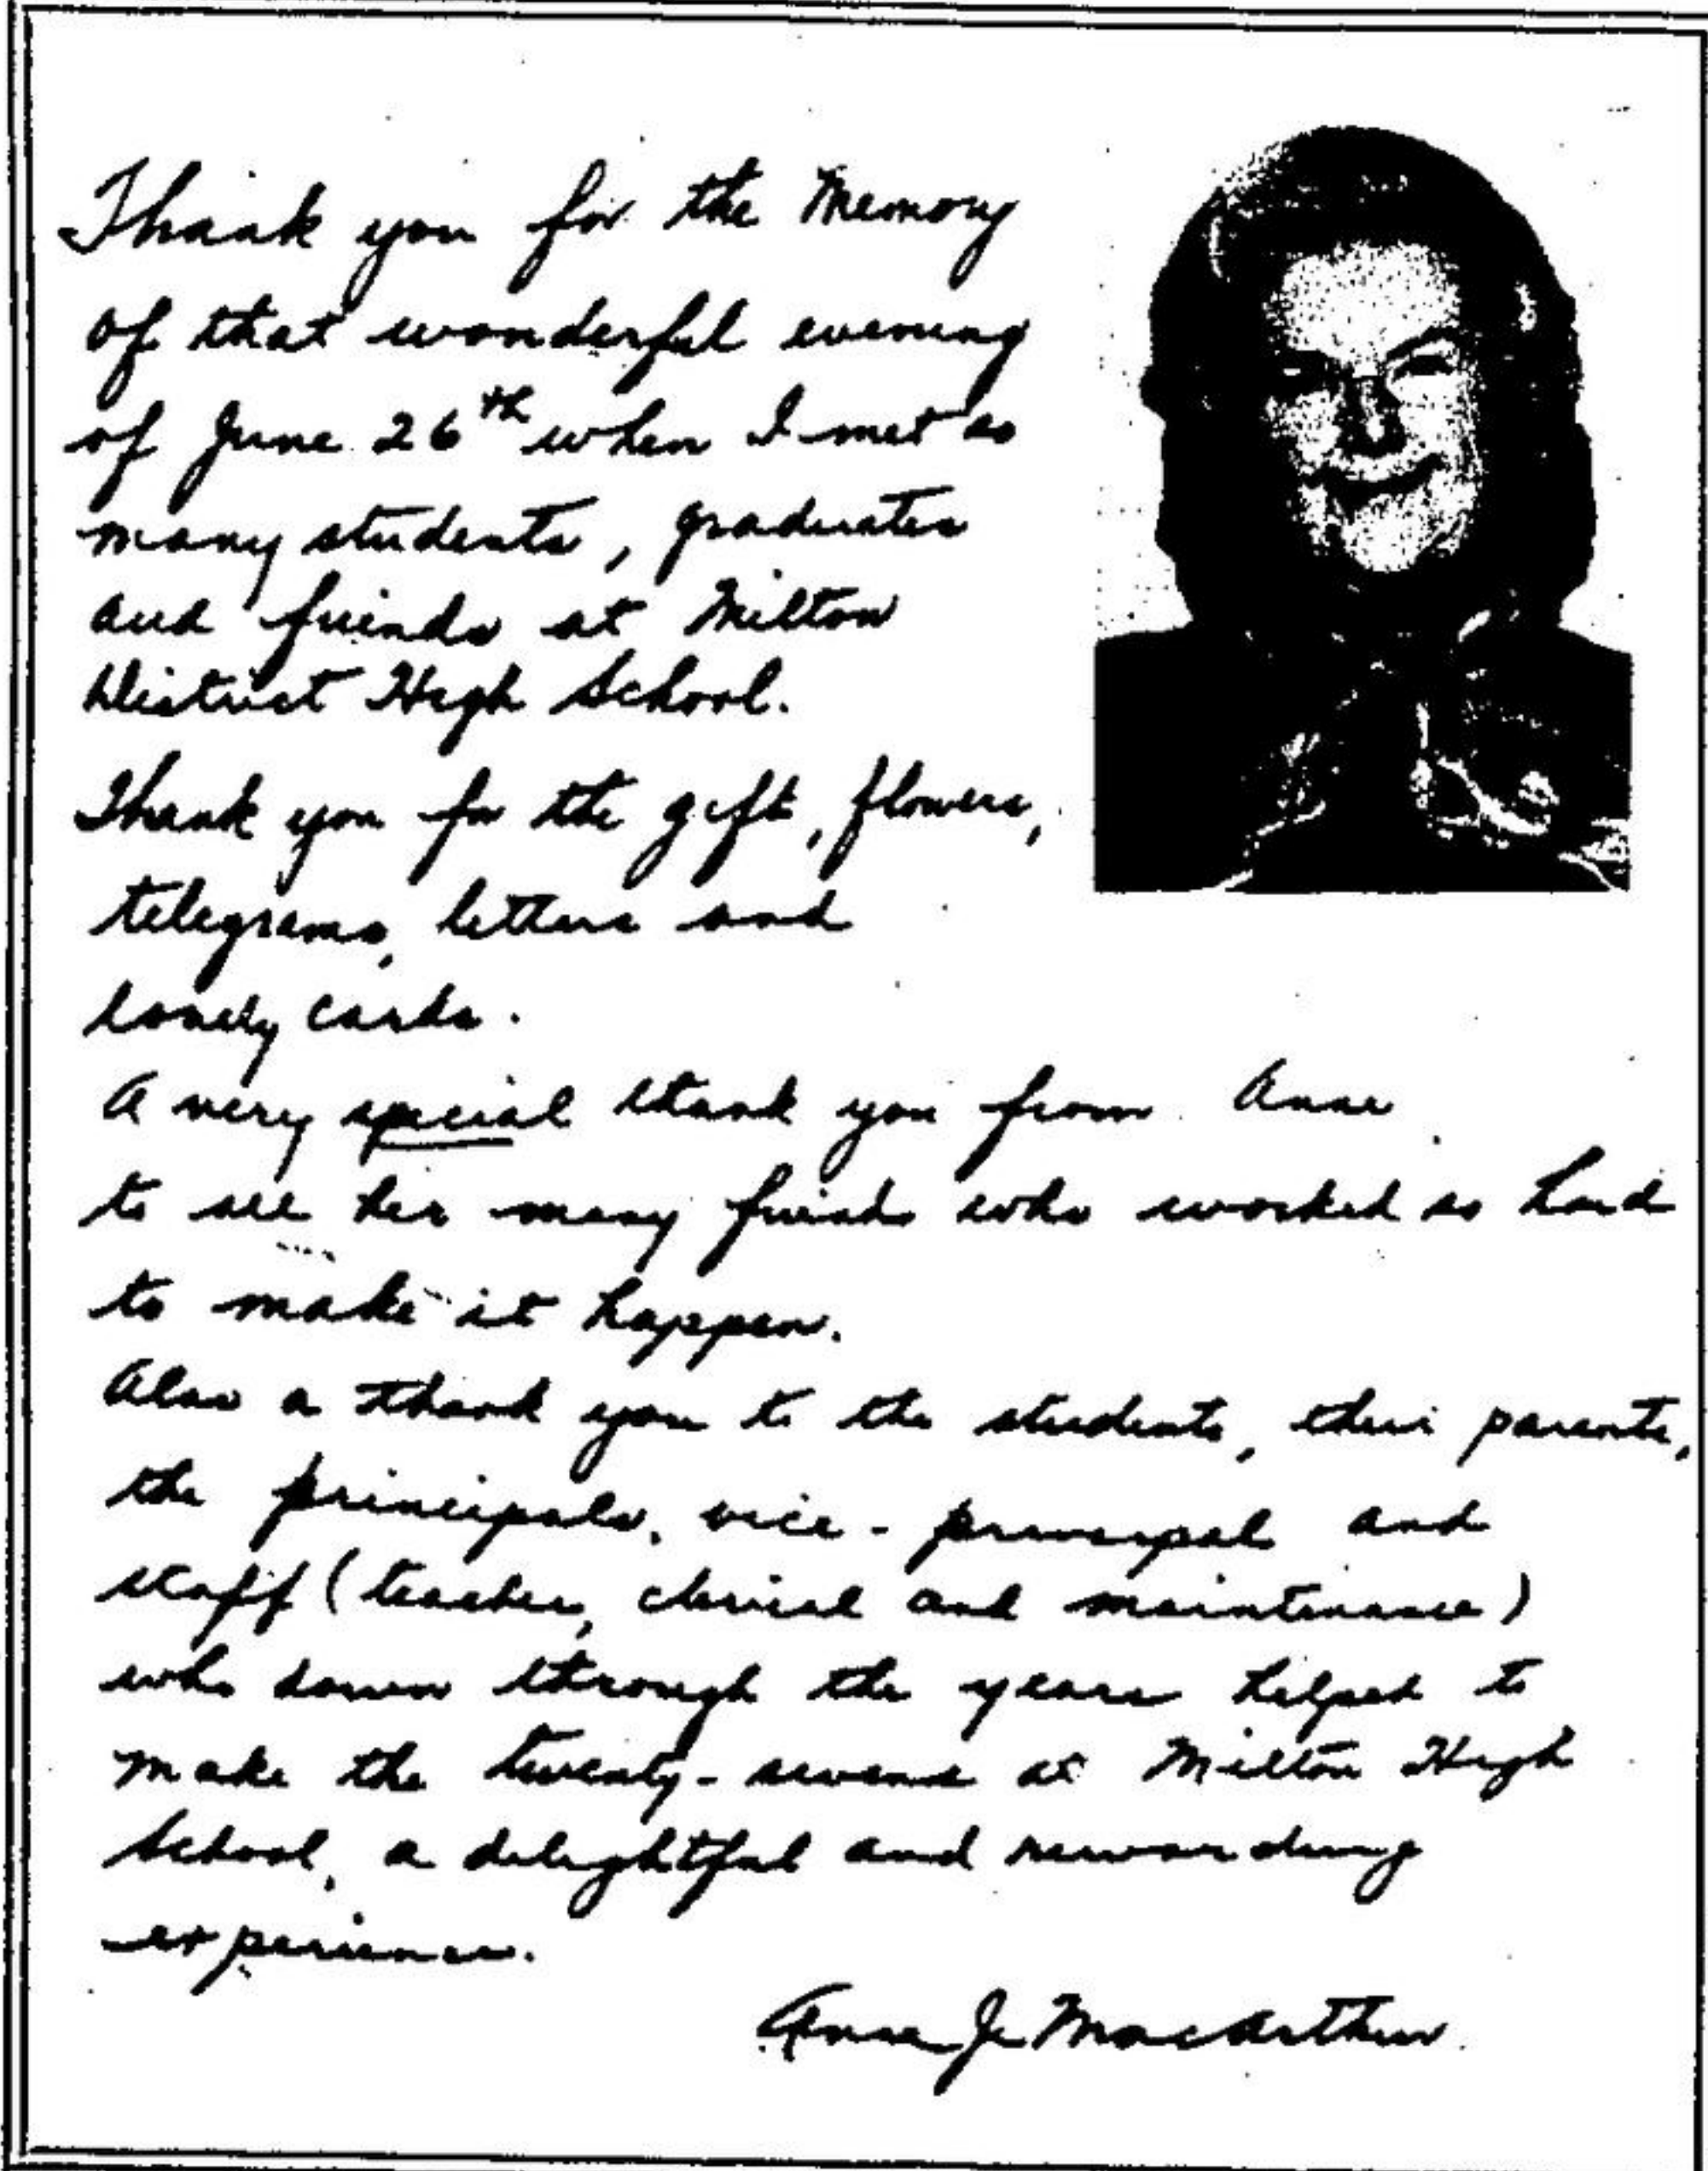 Thank you for the Memory
of that wonderful evening
of June 26th when I met so
many students, graduates
and friends at Milton
District High School.
Thank you for the gift, flowers,
telegrams, letters and
lovely cards.
A very special thank you from Anne
to all her many friends who worked so hard
to make it happen.
Also a thank you to the students, their parents,
the principals, vice-principal and
staff (teacher, clerical and maintenance)
who down through the years helped to
make the twenty-sevens at Milton High
School, a delightful and rewarding
experience.
Anne J. MacArthur